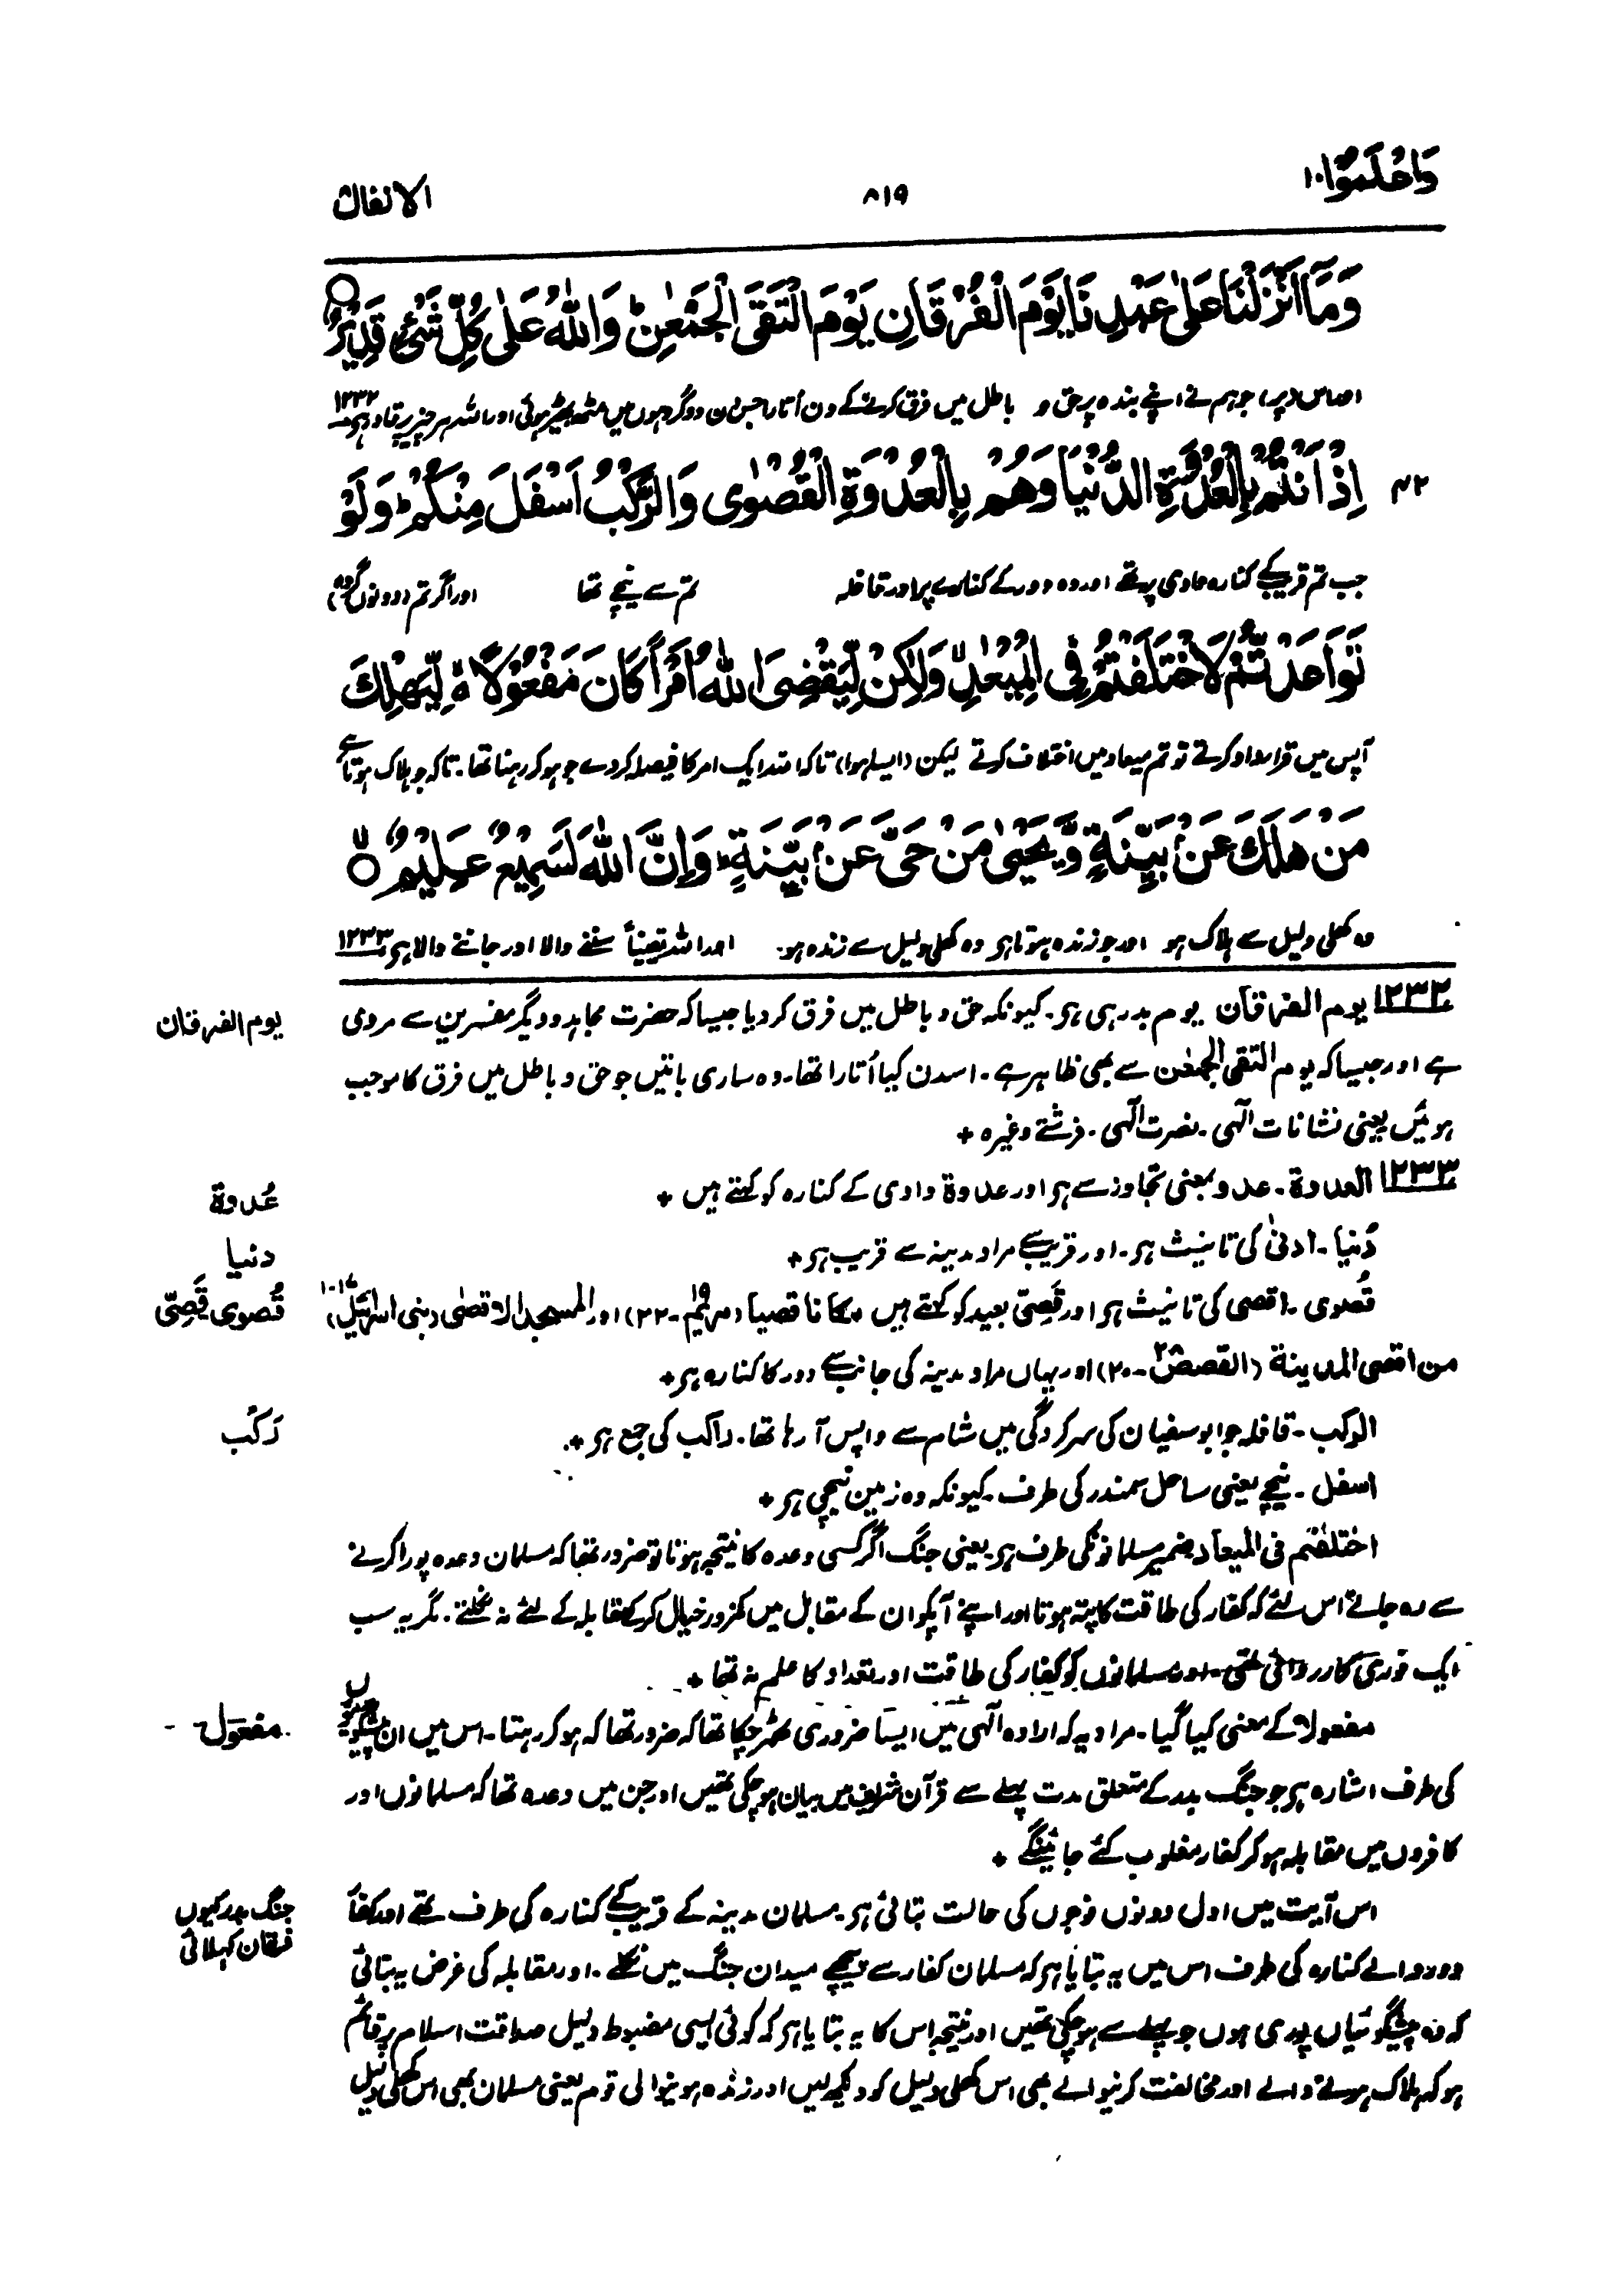 واعلموا ١٠
٨١٩
الانفال
وَمَآ اَنْزَلْنَا عَلٰى عَبْدِنَا يَوْمَ الْفُرْقَانِ يَوْمَ الْتَقَى الْجَمْعٰنِ ؕ وَاللّٰهُ عَلٰى كُلِّ شَىْءٍ قَدِيْرٌ ○
اور اس (پر) جو ہم نے اپنے بندہ پر حق و باطل میں فرق کرنے کے دن اُتارا جس دن دو گروہوں میں مٹھ بھیڑ ہوئی اور اللہ ہر چیز پر قادر ہے ١٢٣٢
٤٢ اِذْ اَنْتُمْ بِالْعُدْوَةِ الدُّنْيَا وَهُمْ بِالْعُدْوَةِ الْقُصْوٰى وَالرَّكْبُ اَسْفَلَ مِنْكُمْ ؕ وَلَوْ
جب تم قریب کے کنارہ وادی پر تھے اور وہ دور کے کنارے پر اور قافلہ تم سے نیچے تھا اور اگر تم (دونوں گروہ)
تَوَاعَدْتُّمْ لَاخْتَلَفْتُمْ فِى الْمِيْعٰدِ ۙ وَلٰكِنْ لِّيَقْضِىَ اللّٰهُ اَمْرًا كَانَ مَفْعُوْلًا ۙ لِّيَهْلِكَ
آپس میں قرارداد کرتے تو تم میعاد میں اختلاف کرتے لیکن (ایسا ہوا) تاکہ اللہ ایک امر کا فیصلہ کردے جو ہو کر رہنا تھا۔ تاکہ جو ہلاک ہوتا ہے
مَنْ هَلَكَ عَنْۢ بَيِّنَةٍ وَّيَحْيٰى مَنْ حَىَّ عَنْۢ بَيِّنَةٍ ؕ وَاِنَّ اللّٰهَ لَسَمِيْعٌ عَلِيْمٌ ۙ ○
وہ کھلی دلیل سے ہلاک ہو اور جو زندہ ہوتا ہے وہ کھلی دلیل سے زندہ ہو۔ اور اللہ یقیناً سننے والا اور جاننے والا ہے ١٢٣٣
١٢٣٢ یوم الفرقان یوم بدر ہی ہے۔ کیونکہ حق و باطل میں فرق کر دیا جیسا کہ حضرت مجاہد و دیگر مفسرین سے مروی
یوم الفرقان
ہے اور جیسا کہ یوم التقی الجمعٰن سے بھی ظاہر ہے۔ اسدن کیا اُتارا تھا۔ وہ ساری باتیں جو حق و باطل میں فرق کا موجب
ہوئیں یعنی نشانات الٰہی۔ نصرت الٰہی۔ فرشتے وغیرہ +
١٢٣٣ العدوة۔ عدو بمعنی تجاوز سے ہے اور عدوة وادی کے کنارہ کو کہتے ہیں +
عُدوة
دُنیا۔ ادنیٰ کی تانیث ہے۔ اور قریب سے مراد مدینہ سے قریب ہے +
دنیا
قُصوی۔ اقصی کی تانیث ہے اور قَصِیّ بعید کو کہتے ہیں مکانا قصیا (مریم ١٩-٢٢) اور المسجد الاقصٰی (بنی اسرائیل ١٧-١)
قُصوی قَصِیّ
من اقصی المدینة (القصص ٢٨-٢٠) اور یہاں مراد مدینہ کی جانب سے دور کا کنارہ ہے +
الرکب۔ قافلہ جو ابوسفیان کی سرکردگی میں شام سے واپس آ رہا تھا۔ راکب کی جمع ہے +
رَکْب
اسفل۔ نیچے یعنی ساحل سمندر کی طرف۔ کیونکہ وہ زمین نیچی ہے +
اختلفتم فی المیعاد ضمیر مسلمانونکی طرف ہے۔ یعنی جنگ اگر کسی وعدہ کا نتیجہ ہوتا تو ضرور تھا کہ مسلمان وعدہ پورا کرنے
سے رہ جاتے اس لئے کہ کفار کی طاقت کا پتہ ہوتا اور اپنے آپکو ان کے مقابل میں کمزور خیال کرکے مقابلہ کے لئے نہ نکلتے۔ مگر یہ سب
ایک فوری کارروائی تھی۔ اور مسلمانوں کو کفار کی طاقت اور تعداد کا علم نہ تھا +
مفعولا کے معنی کیا گیا۔ مراد یہ کہ ارادہ الٰہی میں ایسا ضروری ٹھہر چکا تھا کہ ضرور تھا کہ ہو کر رہتا۔ اس میں ان پیشگوئیوں
مفعول
کی طرف اشارہ ہے جو جنگ بدر کے متعلق مدت پہلے سے قرآن شریف میں بیان ہو چکی تھیں اور جن میں وعدہ تھا کہ مسلمانوں اور
کافروں میں مقابلہ ہو کر کفار مغلوب کئے جائینگے +
اس آیت میں اول دونوں فوجوں کی حالت بتائی ہے۔ مسلمان مدینہ کے قریب کے کنارہ کی طرف تھے اور کفار
جنگ بدر کیوں
فرقان کہلائی
دور والے کنارہ کی طرف اس میں یہ بتایا ہے کہ مسلمان کفار سے پیچھے میدان جنگ میں نکلے۔ اور مقابلہ کی غرض یہ بتائی
کہ وہ پیشگوئیاں پوری ہوں جو پہلے سے ہو چکی تھیں اور نتیجہ اس کا یہ بتایا ہے کہ کوئی ایسی مضبوط دلیل صداقت اسلام پر قائم
ہو کہ ہلاک ہونے والے اور مخالفت کرنیوالے بھی اس کھلی دلیل کو دیکھ لیں اور زندہ ہونیوالی قوم یعنی مسلمان بھی اس کھلی دلیل